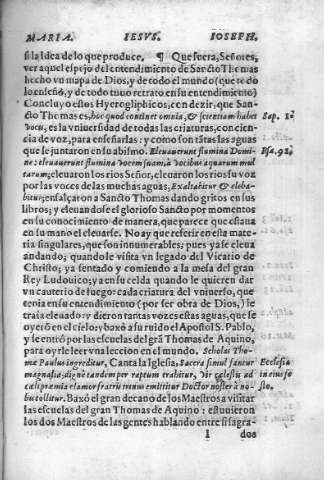 MARIA. IESVS. IOSEPH.
si la Idea de lo que produce. ¶ Que fuera, Señores,
ver aquel espejo del entendimiento de Sancto Thomas
hecho vn mapa de Dios, y de todo el mundo (que todo
lo enseñò, y de todo tuuo retrato en su entendimiento)
Concluyo estos Hyeroglíphicos, con dezir, que San-
cto Thomas es, hoc quod continet omnia, & scientiam habet Sap. 1.
vocis, es la vniuersidad de todas las criaturas, con cien-
cia de voz, para enseñarlas: y como son tãtas las aguas
que se juntaron en su abismo. Eleuauerunt flumina Domi- Psa. 92.
ne: eleuauerunt flumina vocem suam, à vocibus aquarum mul
tarum; eleuaron los rios Señor, eleuaron los rios su voz
por las voces de las muchas aguas, Exaltabitur & eleba-
bitur; ensalçaron a Sancto Thomas dando gritos en sus
libros; y eleuandose el glorioso Sancto por momentos
en su conocimiento de manera, que parece que estaua
en su mano el eleuarse. No ay que referir en esta mate-
ria singulares, que son innumerables; pues ya se eleua
andando; quando le visita vn legado del Vicario de
Christo; ya sentado y comiendo a la mesa del gran
Rey Ludouico; ya en su celda quando le quieren dar
vn cauterio de fuego: cada criatura del vniuerso, que
tenia en su entendimiento (por ser obra de Dios,) le
traia eleuado y dieron tantas vozes estas aguas, que se
oyerõ en el cielo; baxò a su ruido el Apostol S. Pablo,
y se entrò por las escuelas del grã Thomas de Aquino,
para oyrle leer vna leccion en el mundo. Scholas Tho-
mæ Paulus ingreditur, Canta la Iglesia, Sacera simul fancur Ecclesia
magnalia, digne tandem per raptum trahitur, Vir cœlestis ad in eius fe
calipræmia elamor fratrū inum emittitur Doctor noster à no- sto.
bis tollitur. Baxò el gran decano de los Maestros a visitar
las escuelas del gran Thomas de Aquino: estuuieron
los dos Maestros de las gentes hablando entre si sagra-
I dos